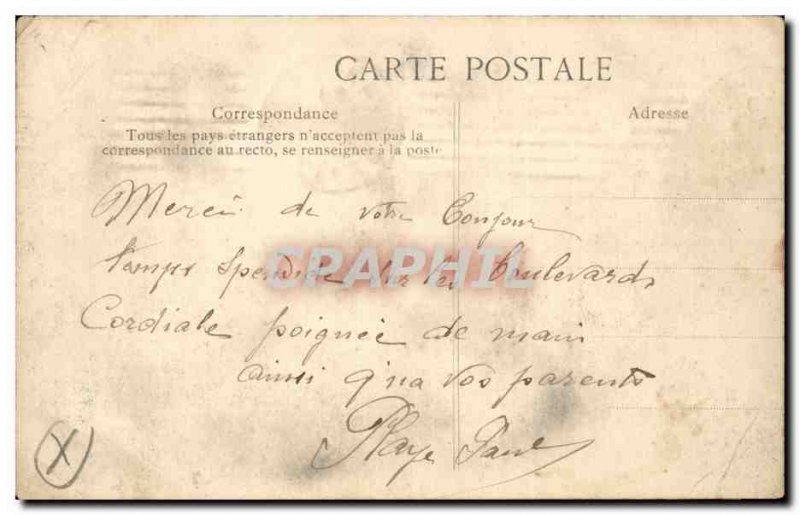 CARTE POSTALE
Correspondance
Adresse
Tous les pays étrangers n'acceptent pas la
correspondance au recto, se renseigner à la poste
Merci de votre Bonjour
temps spendide sur les Boulevards
CPARAPHIL
Cordiale poignée de main
ainsi q'ua vos parents
Playe Paul
X